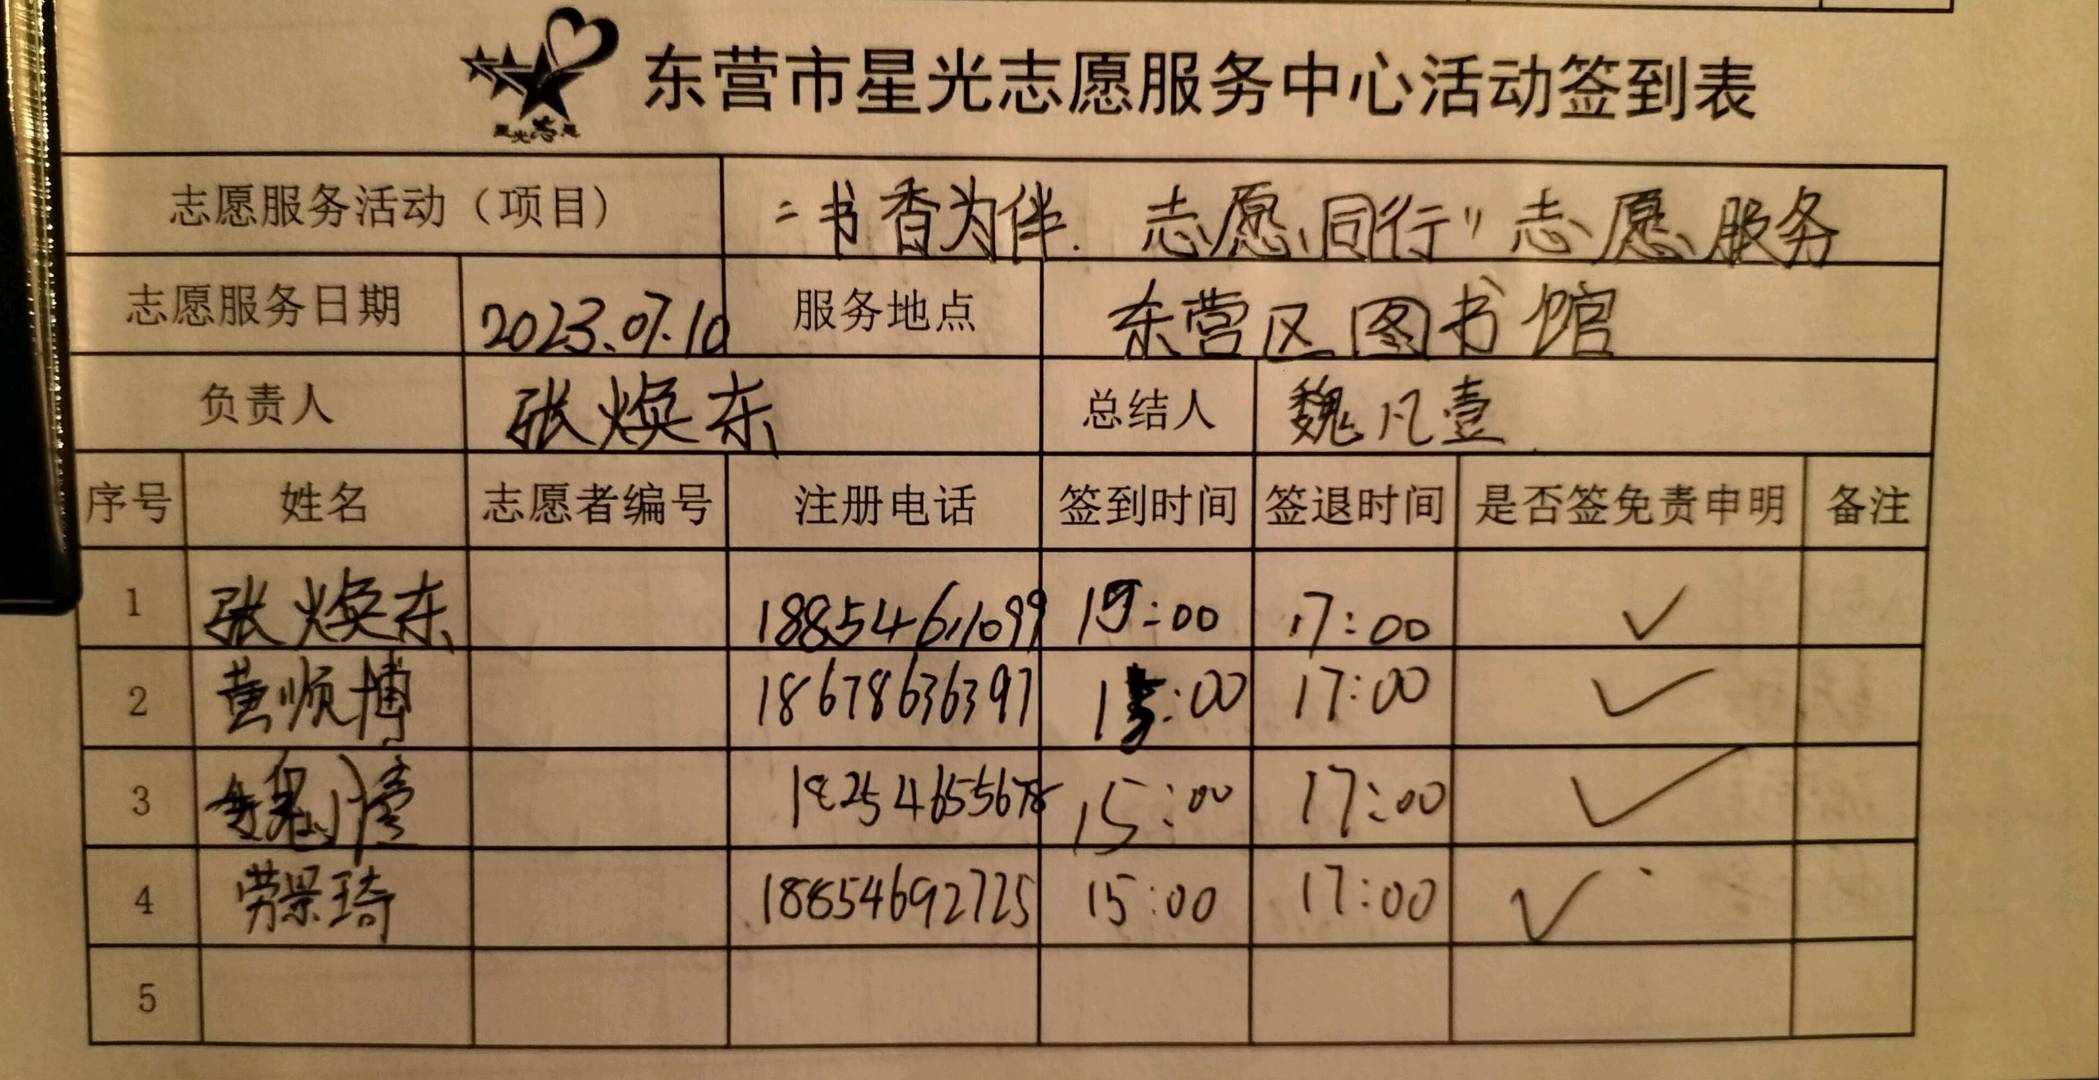 星光志愿
东营市星光志愿服务中心活动签到表
志愿服务活动（项目） “书香为伴．志愿同行”志愿服务
志愿服务日期 2023.07.10 服务地点 东营区图书馆
负责人 张焕东 总结人 魏凡壹
序号 姓名 志愿者编号 注册电话 签到时间 签退时间 是否签免责申明 备注
1 张焕东 18854611099 15:00 17:00 ✓
2 黄顺博 18678636397 15:00 17:00 ✓
3 魏凡壹 18254655678 15:00 17:00 ✓
4 劳景琦 18854692725 15:00 17:00 ✓
5